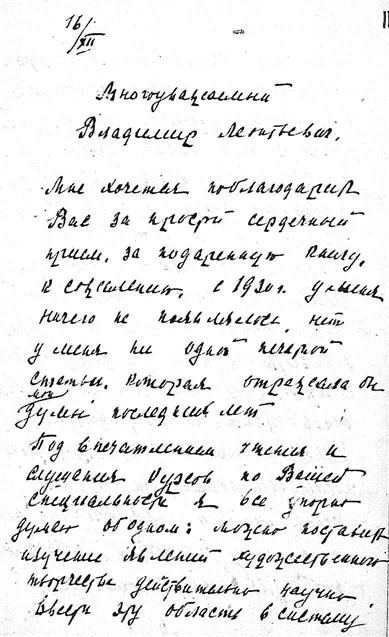 16/XII
Многоуважаемый
Владимир Леонтьевич.
Мне хочется поблагодарить
Вас за простой сердечный
прием, за подаренную книгу,
к сожалению, с 1930 г. у меня
ничего не появлялось, нет
у меня ни одной печатной
статьи, которая отражала бы
мои
думы последних лет
Под впечатлением чтения и
слушания по Вашей
специальности я все упорно
думаю об одном: можно поставить
изучение явлений художественного
творчества действительно научно
ввести эту область в систему